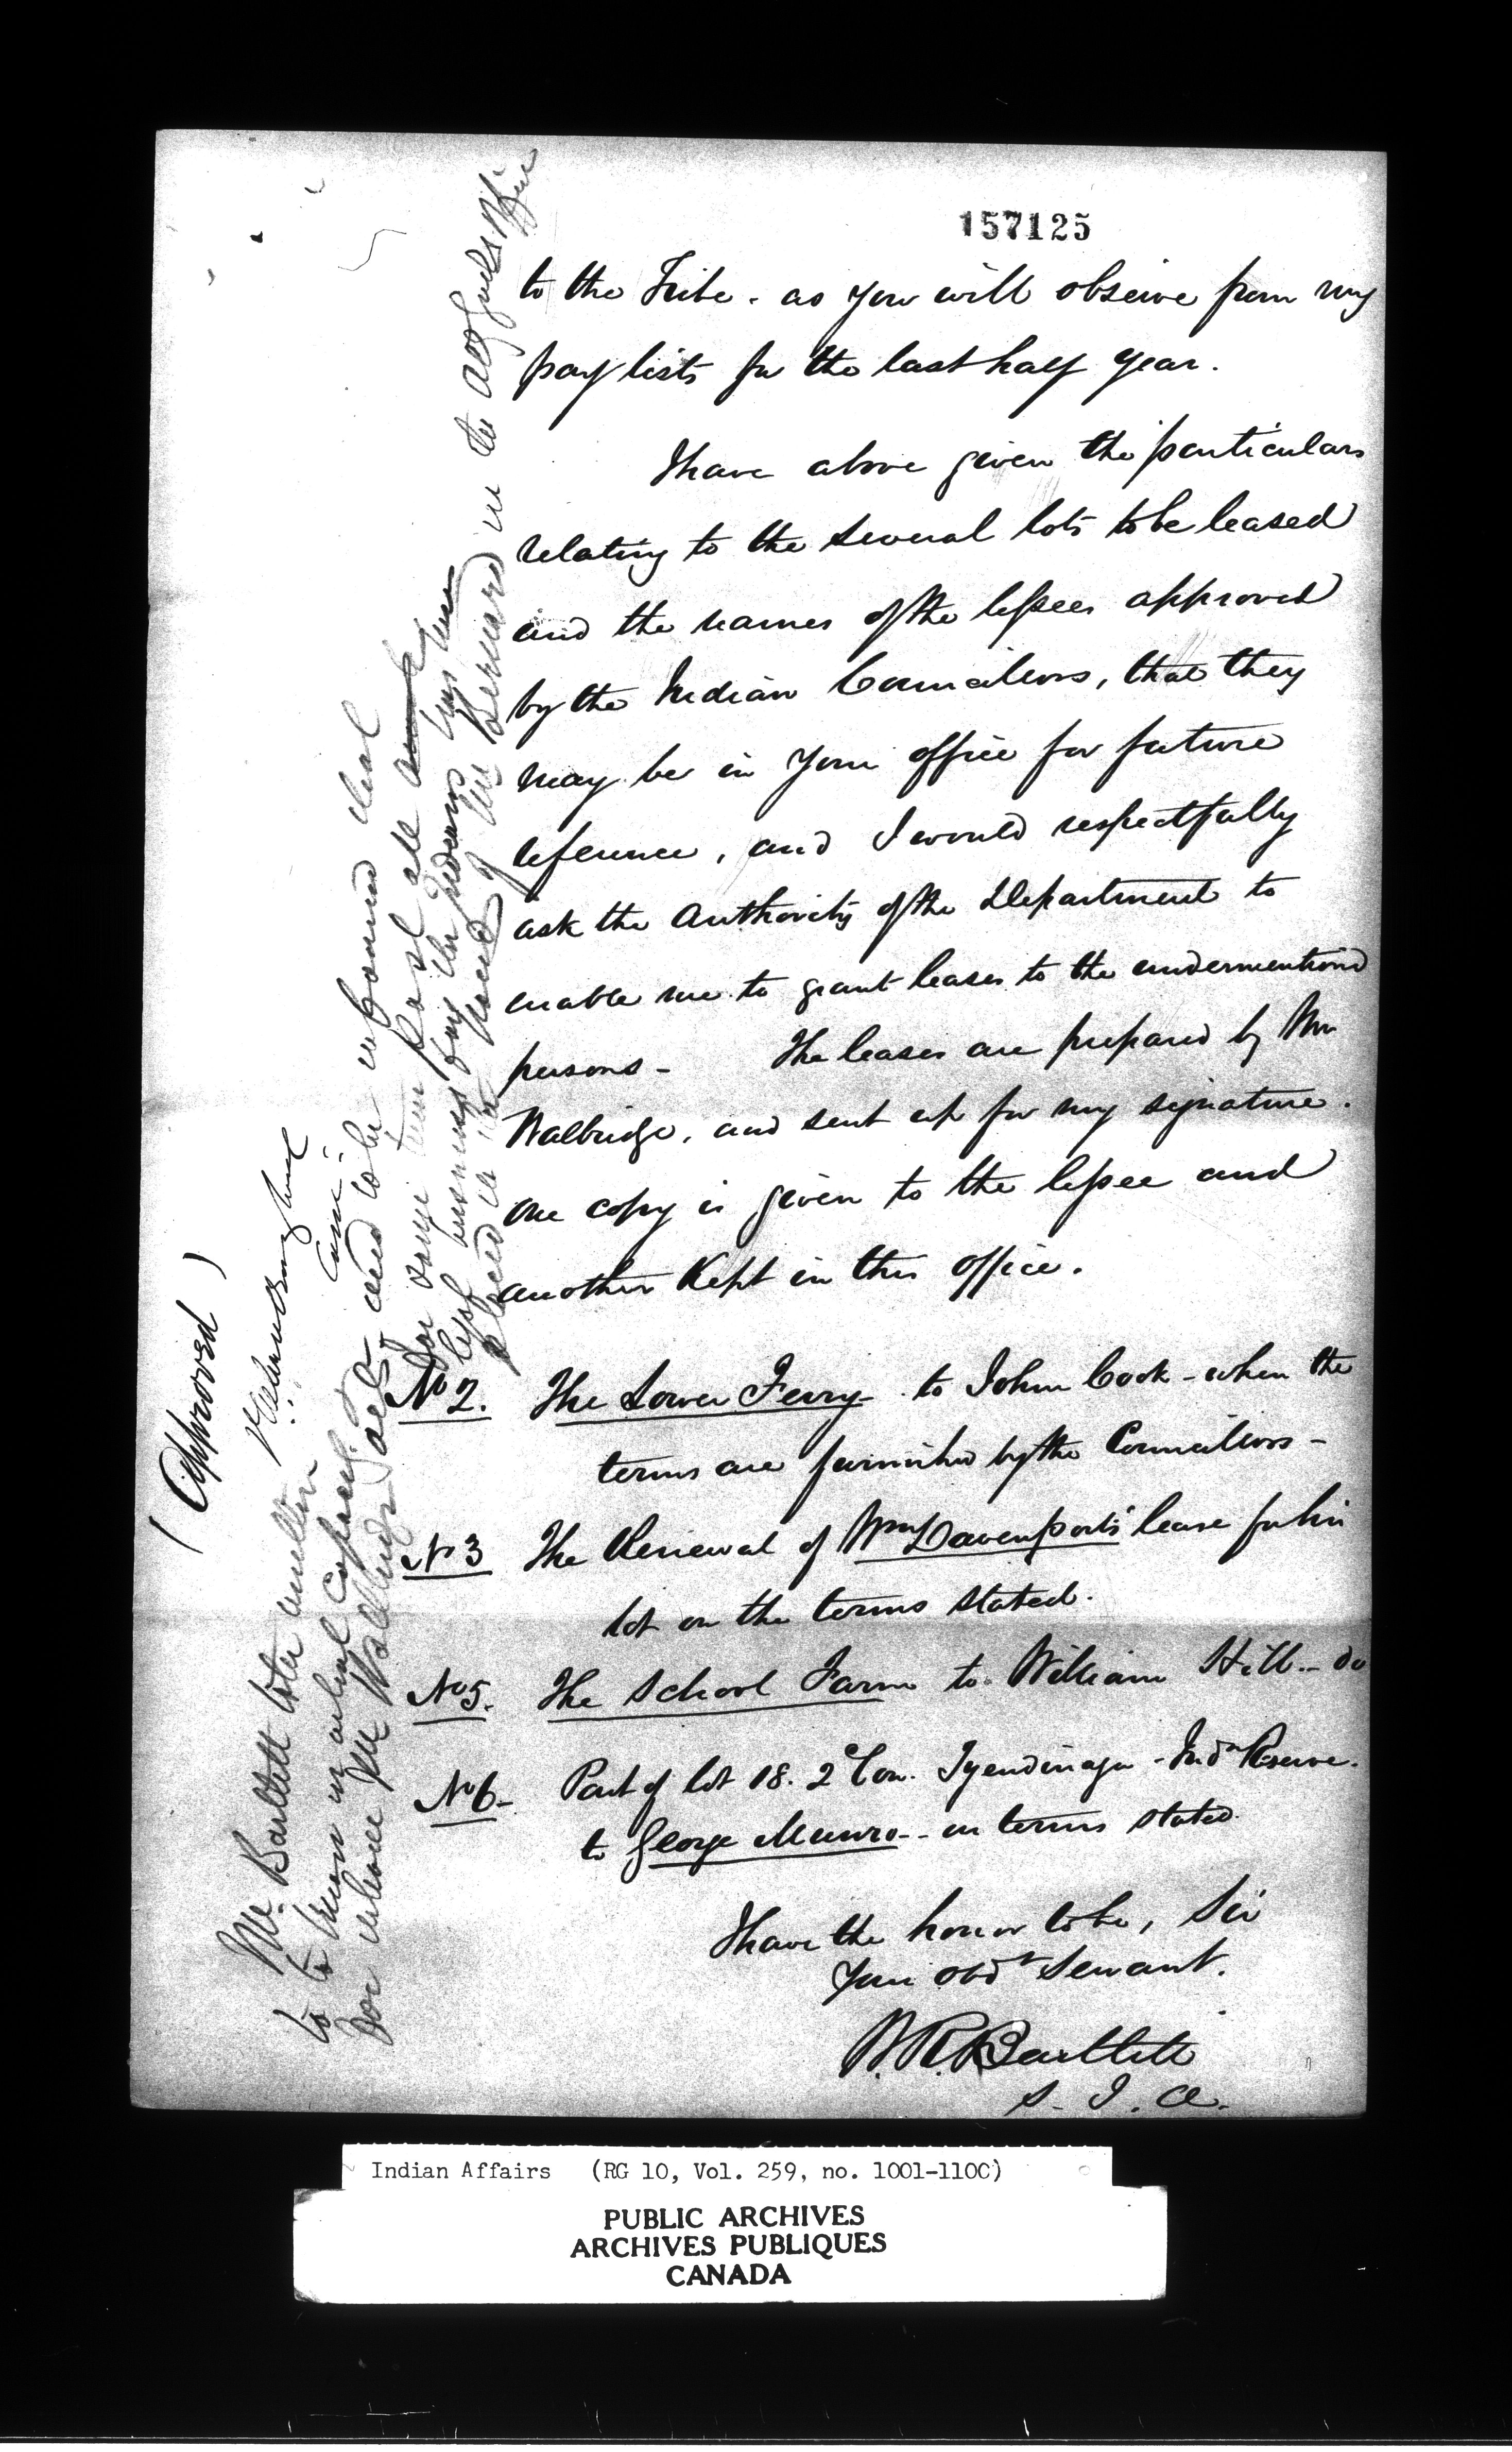 157125
to the Tribe - as you will observe from my
pay lists for the last half year.
I have above given the particulars
relating to the several lots to be leased
and the names of the lessees approved
by the Indian Councillors, that they
may be in your office for future
reference, and I would respectfully
ask the authority of the Department to
enable me to grant leases to the undermentioned
persons - The leases are prepared by Mr
Walbridge, and sent up for my signature.
one copy is given to the lessee and
another Kept in this office.
No 2. The Lower Ferry to John Cook - when the
terms are furnished by the Councillors -
No 3 The Renewal of Wm Davenport's lease for his
lot on the terms stated.
No 5. The School Farm to William Hill - do
No 6 - Part of lot 18. 2d Con. Tyendinaga - Indn Reserve.
to George Munro - on terms stated
I have the honor to be, Sir
Your obdt Servant.
W. R. Bartlett
S. I. A.
(Approved)
Mr. Bartlett
to
for whom Mr Wallbridge acts and to be informed that
for some time past all
legal business for the Indians has been
placed in the hands of Mr Bernard in the Atty Genl's Office
Indian Affairs (RG 10, Vol. 259, no. 1001-1100)
PUBLIC ARCHIVES
ARCHIVES PUBLIQUES
CANADA